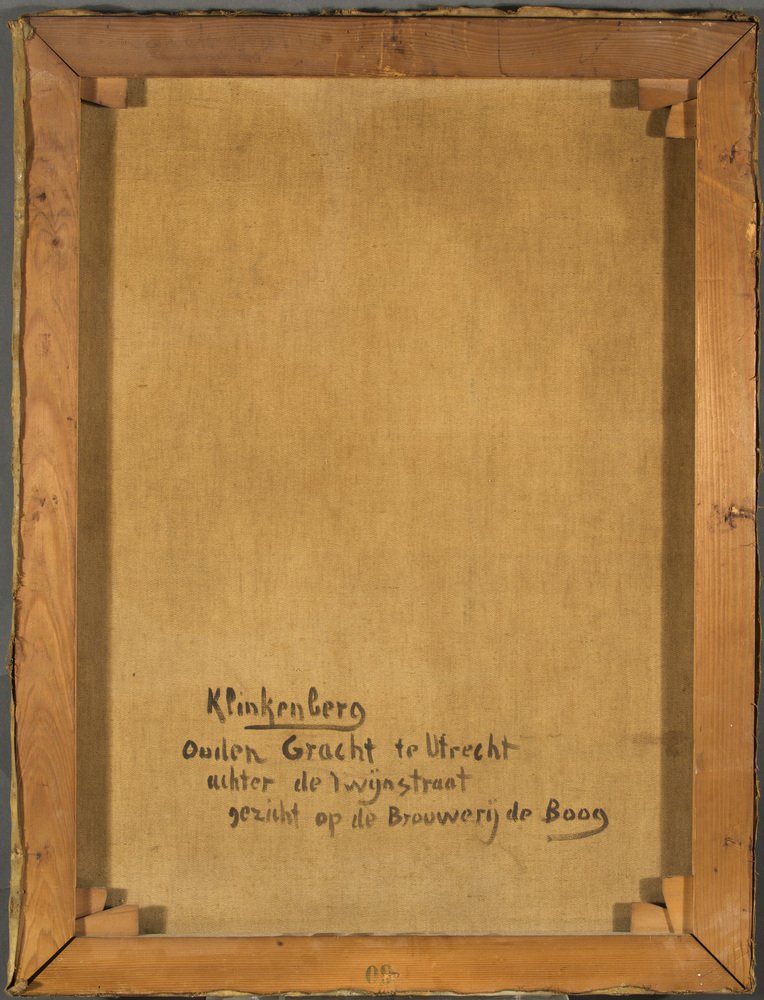 Klinkenberg
Ouden Gracht te Utrecht
achter de Twijnstraat
gezicht op de Brouwerij de Boog
80